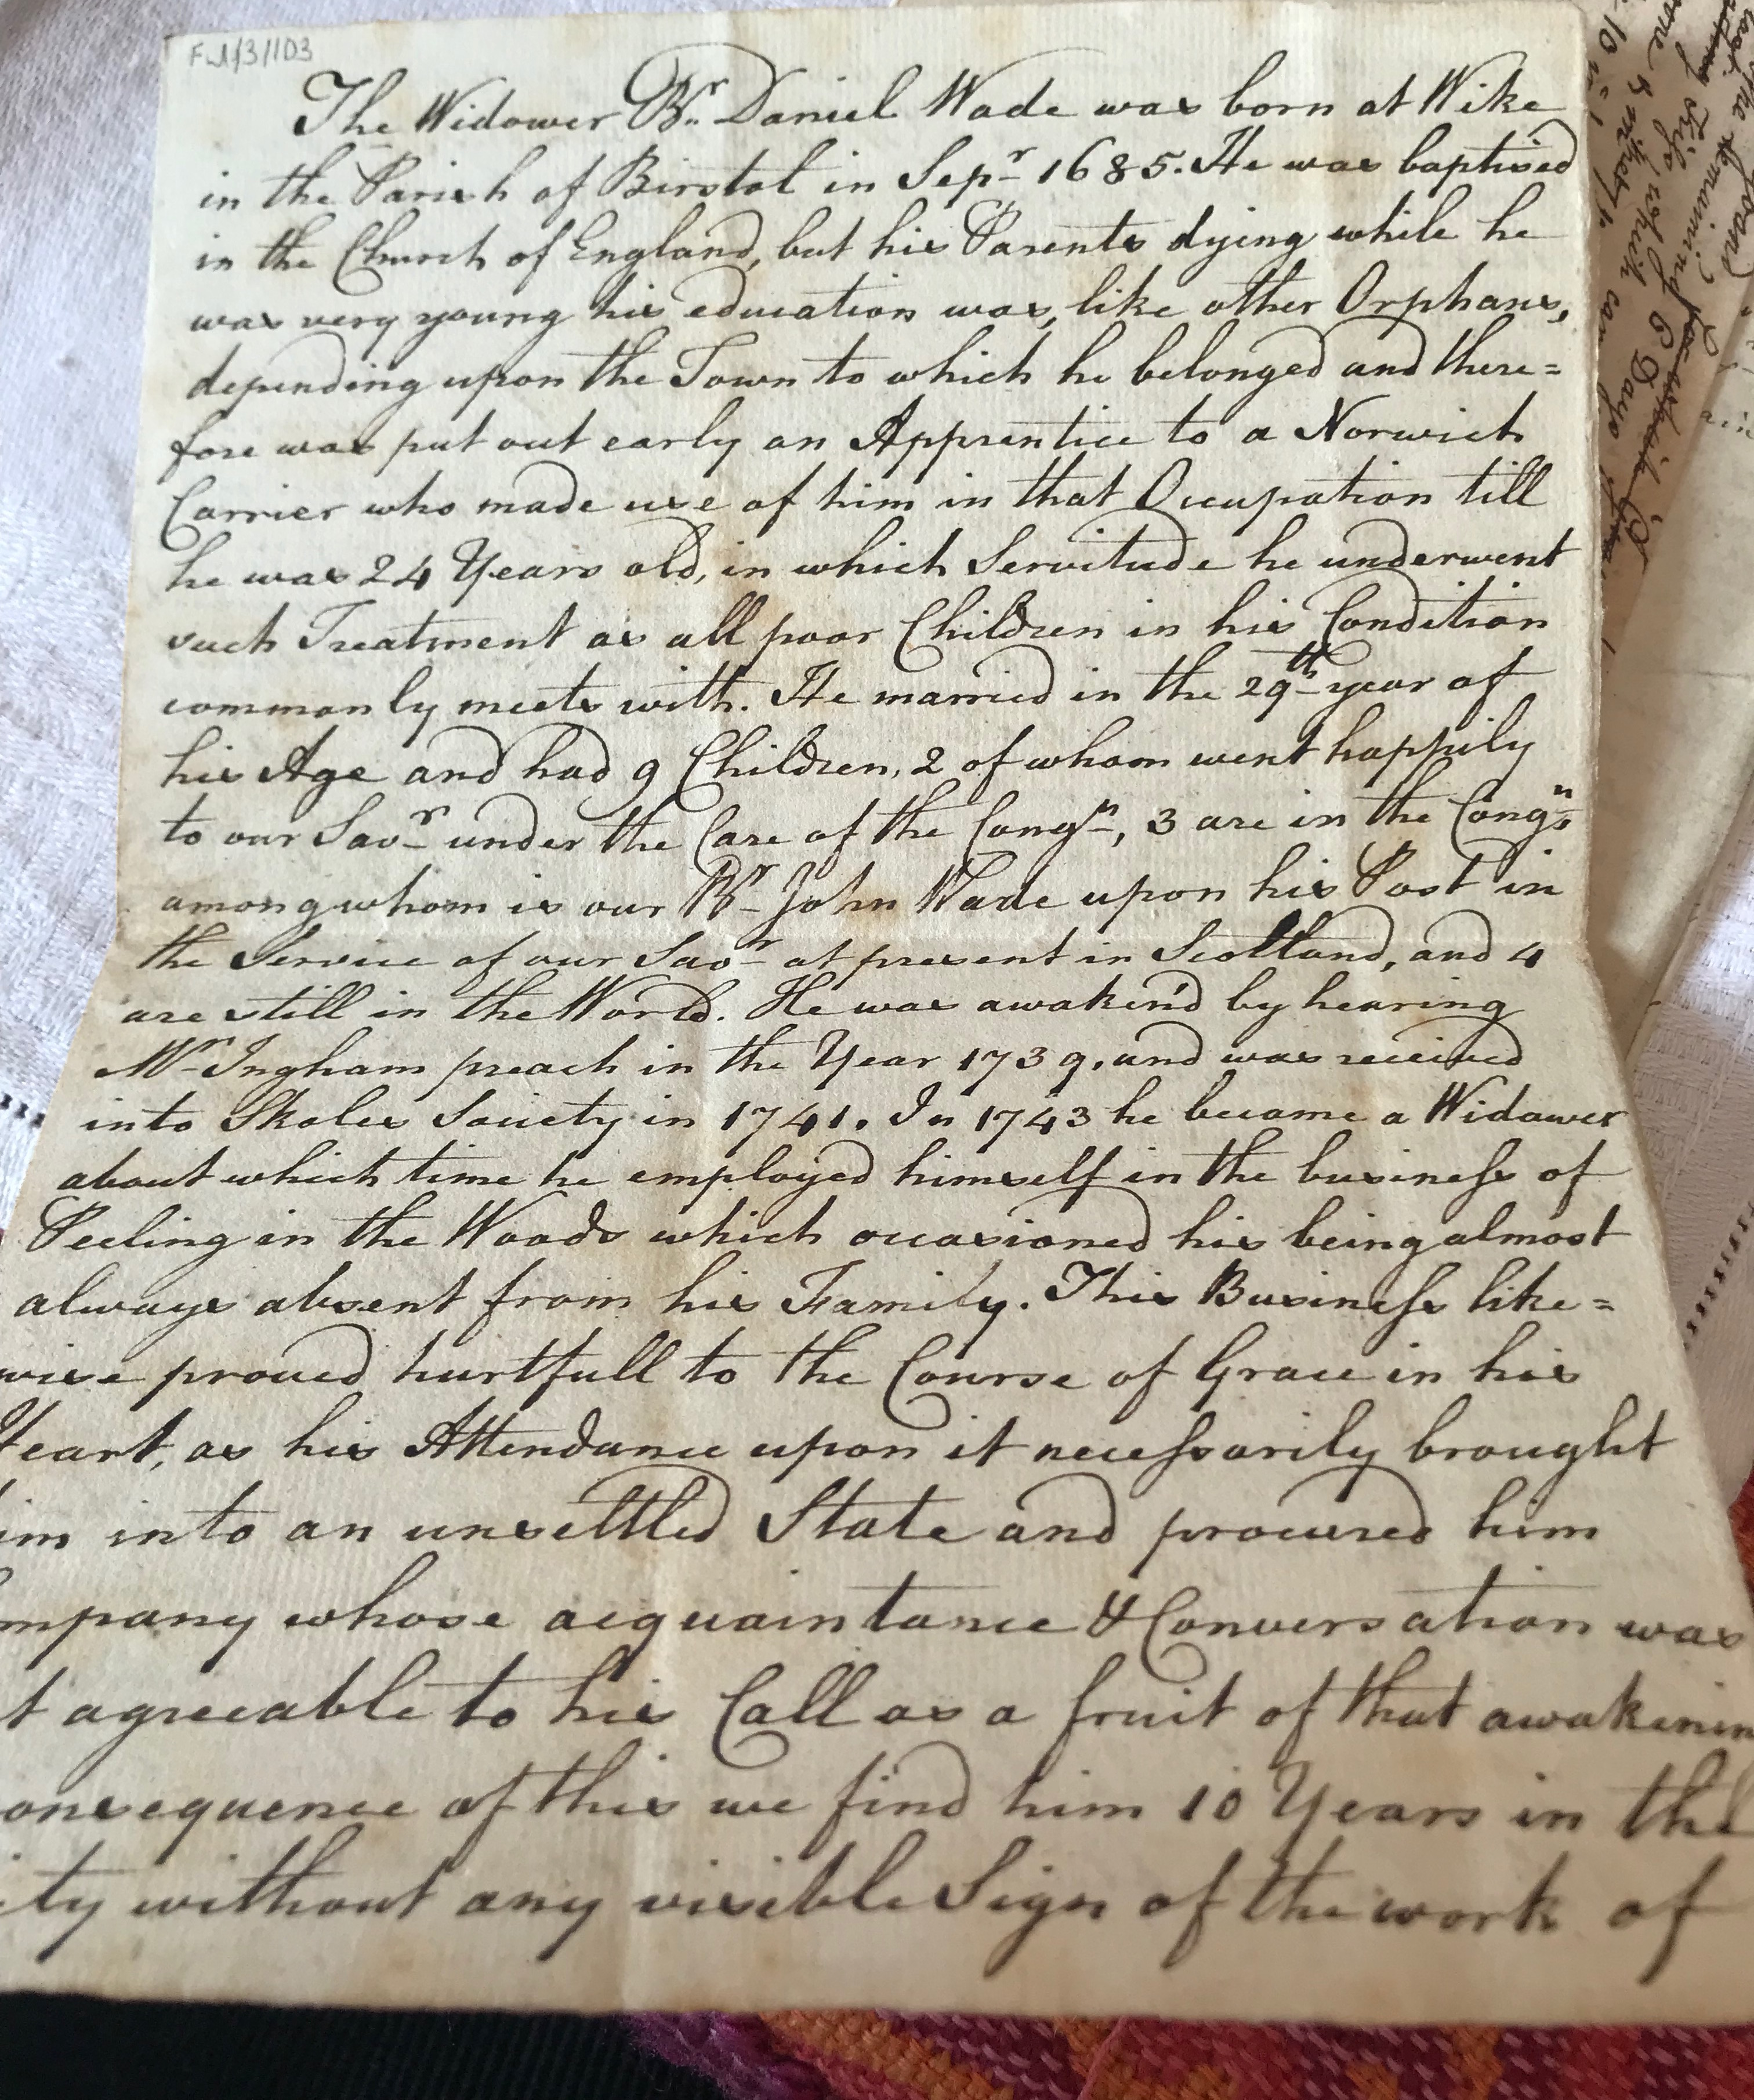 FU/3/103
The Widower Br. Daniel Wade was born at Wike
in the Parish of Birstol in Sepr 1685. He was baptised
in the Church of England, but his Parents dying while he
was very young his education was, like other Orphans,
depending upon the Town to which he belonged and there=
fore was put out early an Apprentice to a Norwich
Carrier who made use of him in that Occupation till
he was 24 Years old, in which Servitude he underwent
such Treatment as all poor Children in his Condition
commonly meets with. He married in the 29th year of
his Age and had 9 Children, 2 of whom went happily
to our Savr under the Care of the Congn, 3 are in the Congn
among whom is our Br John Wade upon his Post in
the Service of our Savr at present in Scotland, and 4
are still in the World. He was awaken'd by hearing
Mr Ingham preach in the Year 1739, and was received
into Skoles Society in 1741. In 1743 he became a Widower
about which time he employed himself in the business of
Peeling in the Woods which occasioned his being almost
always absent from his Family. This Business like=
wise proved hurtfull to the Course of Grace in his
Heart, as his Attendance upon it necessarily brought
him into an unsettled State and procured him
mpany whose acquaintance & Conversation was
t agreeable to his Call as a fruit of that awakenin
onsequence of this we find him 10 Years in the
ty without any visible Sign of the work of